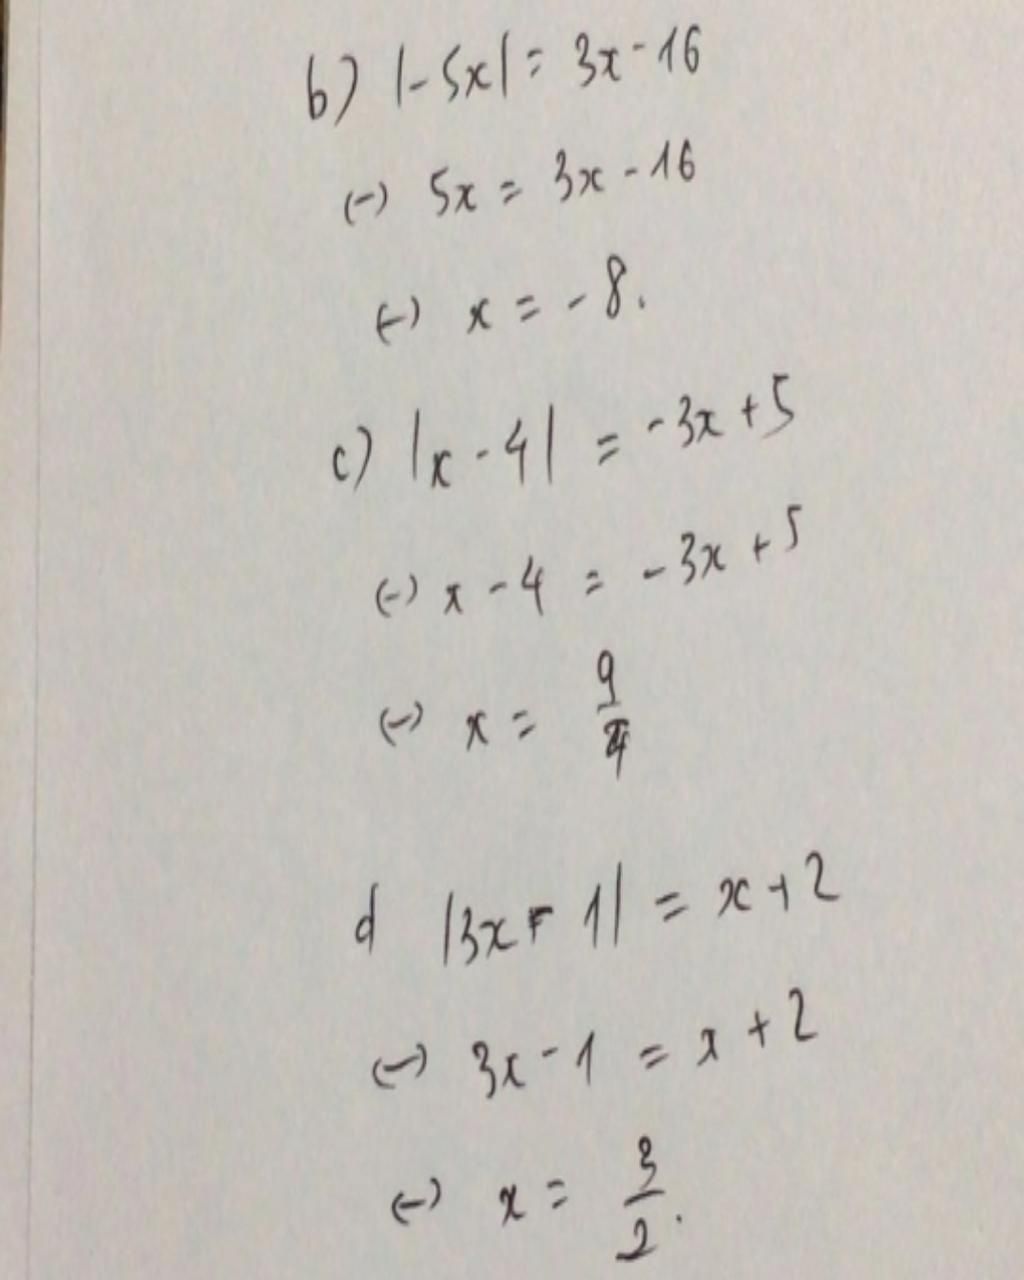 b) |-5x| = 3x - 16
(-) 5x = 3x - 16
(-) x = -8.
c) |x - 4| = -3x + 5
(-) x - 4 = -3x + 5
(-) x = 9/4
d |3x - 1| = x + 2
(-) 3x - 1 = x + 2
(-) x = 3/2.